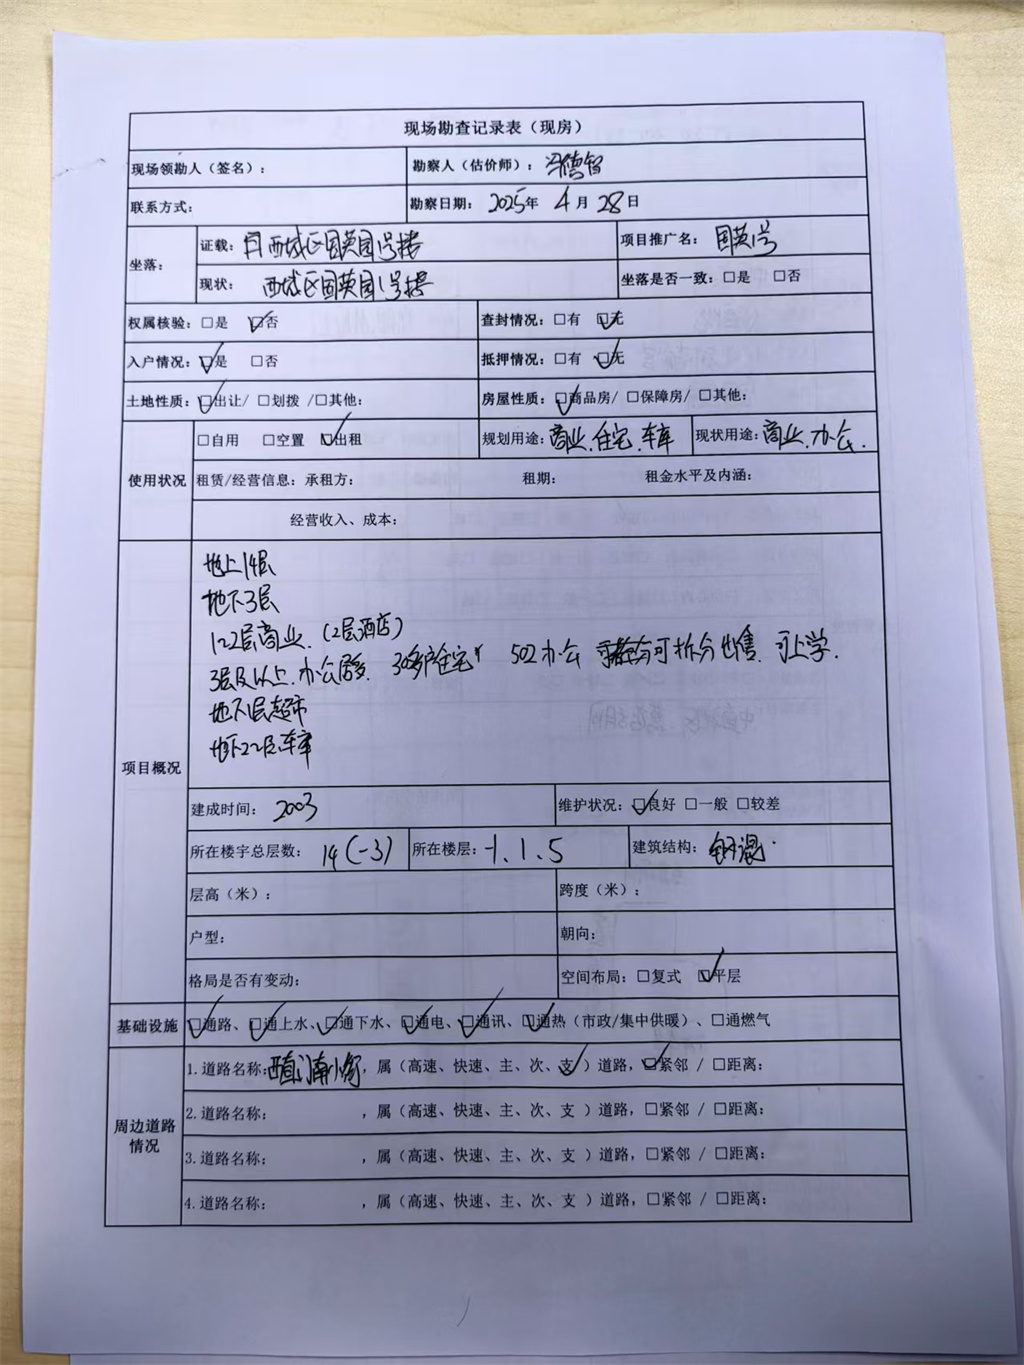 现场勘查记录表（现房）
现场领勘人（签名）： 勘察人（估价师）：冯德智
联系方式： 勘察日期：2025年 4月28日
坐落： 证载：西城区国英园1号楼 项目推广名：国英1号
现状： 西城区国英园1号楼 坐落是否一致：□是 □否
权属核验：□是 ☑否 查封情况：□有 ☑无
入户情况：☑是 □否 抵押情况：□有 ☑无
土地性质：☑出让/ □划拨 /□其他： 房屋性质：☑商品房/ □保障房/ □其他：
使用状况 □自用 □空置 ☑出租 规划用途：商业、住宅、车库 现状用途：商业、办公.
租赁/经营信息：承租方： 租期： 租金水平及内涵：
经营收入、成本：
项目概况
地上14层
地下3层
1-2层商业.（2层酒店）
3层及以上.办公居多. 30多户住宅 502办公 可拆分出售. 可上学.
地下1层超市
地下2层车库
建成时间： 2003 维护状况：☑良好 □一般 □较差
所在楼宇总层数： 14(-3) 所在楼层：-1、1、5 建筑结构：钢混
层高（米）： 跨度（米）：
户型： 朝向：
格局是否有变动： 空间布局：□复式 ☑平层
基础设施 ☑通路、☑通上水、☑通下水、☑通电、☑通讯、☑通热（市政/集中供暖）、□通燃气
周边道路情况
1.道路名称：西直门南小街，属（高速、快速、主、次、支✓）道路，☑紧邻 / □距离：
2.道路名称： ，属（高速、快速、主、次、支 ）道路，□紧邻 / □距离：
3.道路名称： ，属（高速、快速、主、次、支 ）道路，□紧邻 / □距离：
4.道路名称： ，属（高速、快速、主、次、支 ）道路，□紧邻 / □距离：